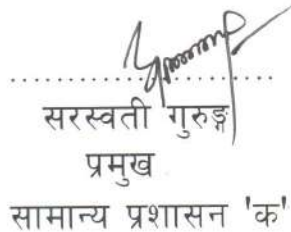 ..............................
सरस्वती गुरुङ्ग
प्रमुख
सामान्य प्रशासन 'क'